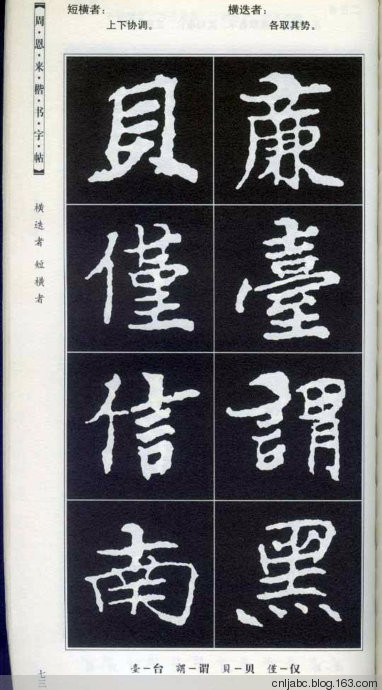 短横者：
上下协调。
横迭者：
各取其势。
【周·恩·来·楷·书·字·帖】
横迭者 短横者
貝 廉
僅 臺
信 謂
南 黑
七三
臺－台 謂－谓 貝－贝 僅－仅
cnljabc.blog.163.com